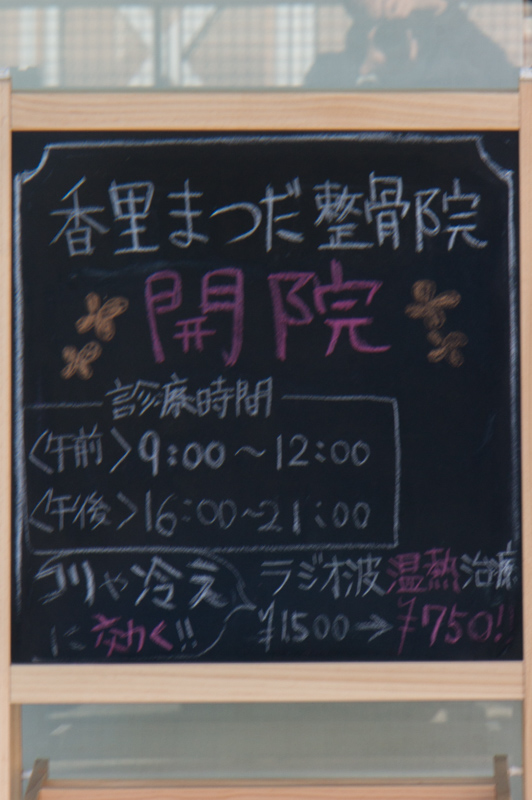 香里まつだ整骨院
開院
診療時間
〈午前〉9:00～12:00
〈午後〉16:00～21:00
コリや冷え
に効く!!
ラジオ波温熱治療
¥1500→¥750!!